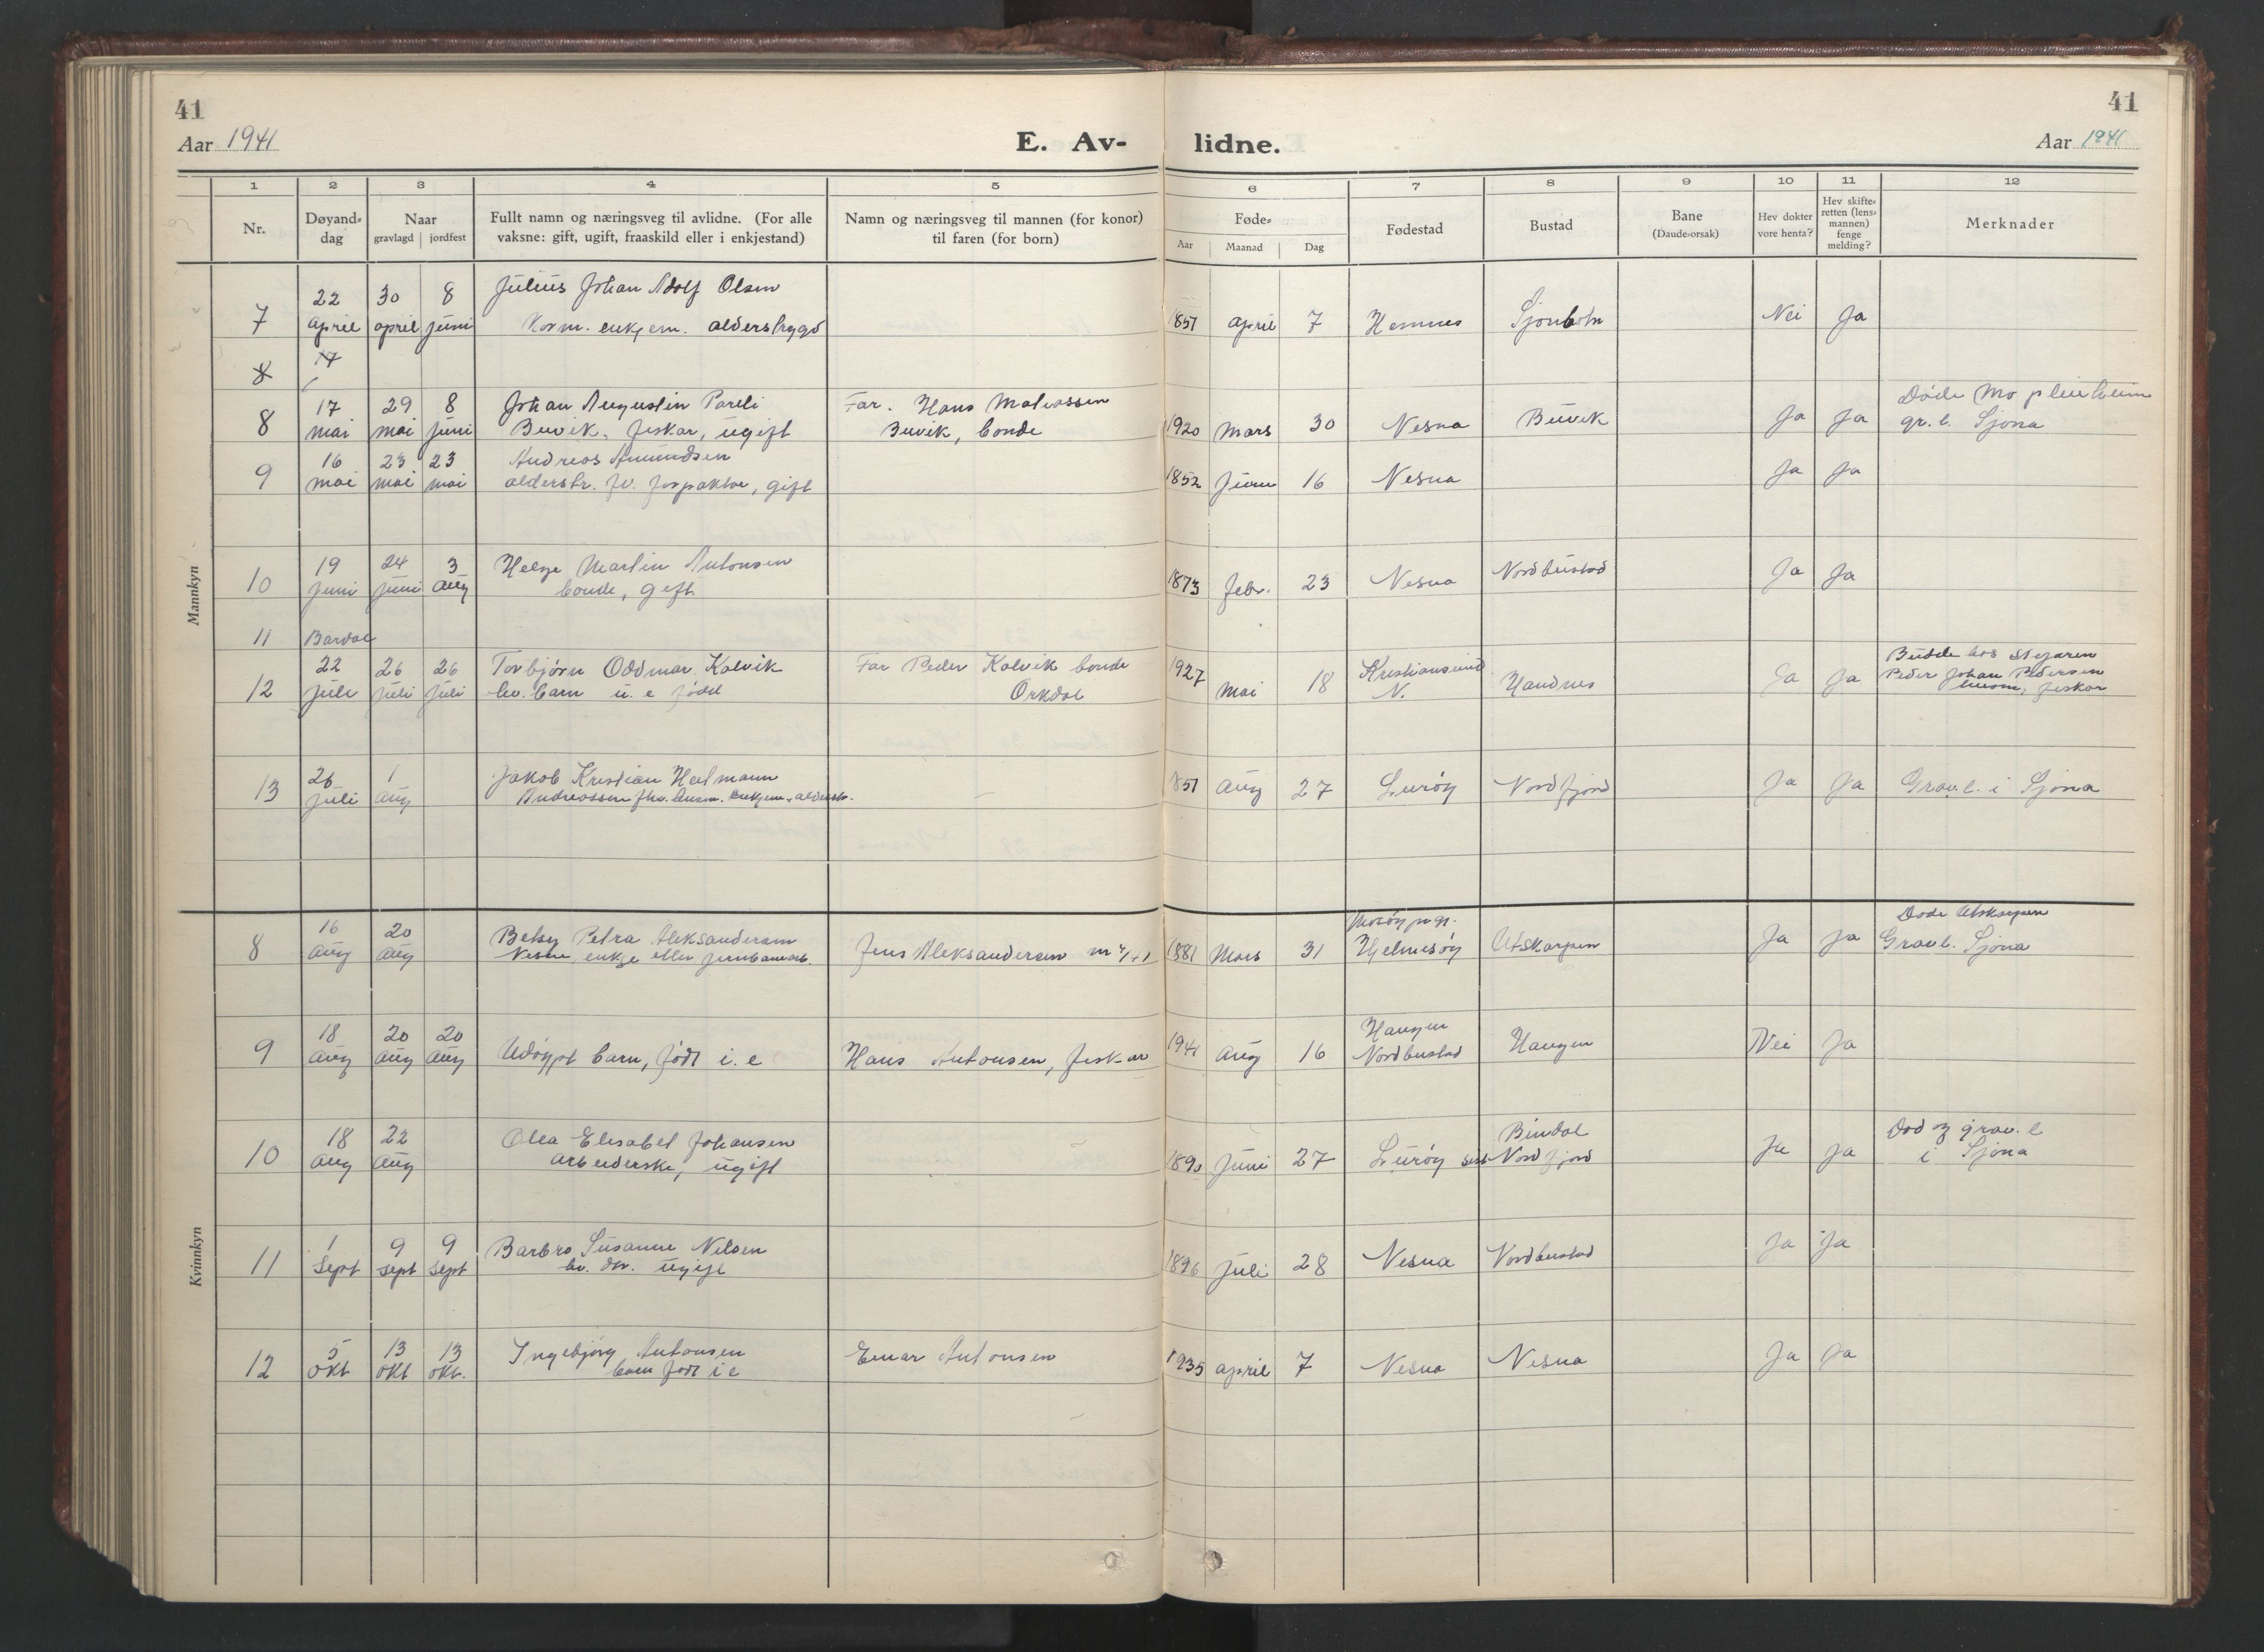 41
Aar 1941
E. Av-
lidne.
41
Aar 1941
1 2 3 4 5 6 7 8 9 10 11 12
Nr.
Døyand-
dag
Naar
gravlagd | jordfest
Fullt namn og næringsveg til avlidne. (For alle
vaksne: gift, ugift, fraaskild eller i enkjestand)
Namn og næringsveg til mannen (for konor)
til faren (for born)
Føde-
Aar Maanad Dag
Fødestad
Bustad
Bane
(Daude-orsak)
Hev dokter
vore henta?
Hev skifte-
retten (lens-
mannen)
fenge
melding?
Merknader
Mannkyn
22 30 8 Julius Johan Adolf Olsen
7 april april juni enkjem. alderstrygd 1851 april 7 Hemnes Sjonbotn Nei Ja
8 17
17 29 8 Johan Augustin Pareli Far. Hans Matiassen Døde Mo pleieheim
8 mai mai juni Buvik, fiskar, ugift Buvik, bonde 1920 Mars 30 Nesna Buvik Ja Ja gr. l. Sjona
16 23 23 Andreas Amundsen
9 mai mai mai alderstr. fv. forpaktar, gift 1852 Juni 16 Nesna Ja Ja
19 24 3 Helge Martin Antonsen
10 juni juni aug bonde, gift 1873 febr. 23 Nesna Nordbustad Ja Ja
11 Bardal
22 26 26 Torbjørn Oddmar Kalvik Far Peder Kalvik bonde 1927 Kristiansund Budde hos
12 juli juli juli barn u. e født Orkdal Mai 18 N. Handnes Ja Ja Peder Johan Pedersen
fiskar
26 1 Jakob Kristian Heilmann
13 juli aug Andreassen enkjem. alderstr. 1851 aug 27 Lurøy Nordfjord Ja Ja Grav.l. i Sjona
Kvinnkyn
16 20 Betsy Petra Aleksandersen Døde Utskarpen
8 aug aug enkje etter jernbanearb. Jens Aleksandersen 1881 Mars 31 Hjelmesøy Utskarpen Ja Ja Gravl. Sjona
18 20 20 Haugen
9 aug aug aug Udøypt barn, født i. e Hans Antonsen, fiskar 1941 aug 16 Nordbustad Haugen Nei Ja
18 22 Olea Elisabet Johansen Bindal Død og grav. l
10 aug aug arbeiderske, ugift Juni 27 Lurøy sist Nordfjord Ja Ja i Sjona
1 9 9 Barbro Susanne Nilsen
11 sept sept sept ugift 1896 juli 28 Nesna Nordbustad Ja Ja
5 13 13 Ingebjørg Antonsen Einar Antonsen
12 okt okt okt. barn født i e 1935 april 7 Nesna Nesna Ja Ja